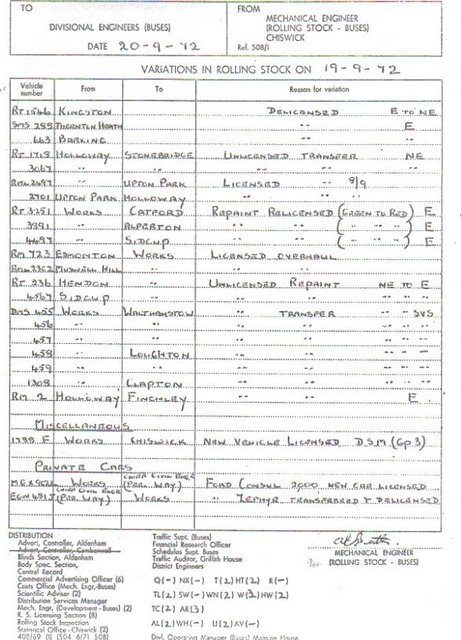 TO
DIVISIONAL ENGINEERS (BUSES)
DATE 20-9-72
FROM
MECHANICAL ENGINEER
(ROLLING STOCK - BUSES)
CHISWICK
Ref. 508/1
VARIATIONS IN ROLLING STOCK ON 19-9-72
Vehicle number From To Reason for variation
RT 1566 KINGSTON DELICENSED E TO NE
SMS 288 THORNTON HEATH -- E
663 BARKING -- --
RT 1718 HOLLOWAY STONEBRIDGE UNLICENSED TRANSFER NE
3067 -- -- -- -- --
RML 2697 -- UPTON PARK LICENSED -- 8/9
2701 UPTON PARK HOLLOWAY -- -- --
RT 3251 WORKS CATFORD REPAINT RELICENSED (GREEN TO RED) E
3391 -- ALPERTON -- -- ( -- -- -- ) E
4497 -- SIDCUP -- -- ( -- -- -- ) E
RM 723 EDMONTON WORKS LICENSED OVERHAUL
RML 2362 MUSWELL HILL -- -- --
RT 236 HENDON -- UNLICENSED REPAINT NE TO E
SIDCUP -- -- -- -- -- --
DMS 455 WORKS WALTHAMSTOW -- TRANSFER -- SVS
456 -- -- -- -- -- --
457 -- -- -- -- -- --
458 -- LOUGHTON -- -- -- --
459 -- -- -- -- -- --
1308 -- CLAPTON -- -- -- --
RM 2 HOLLOWAY FINCHLEY -- -- E
MISCELLANEOUS
1788 F WORKS CHISWICK NEW VEHICLE LICENSED D.S.M (Gp 3)
PRIVATE CARS
WORKS CHIEF CIVIL ENGR (PER. WAY) FORD CONSUL 2000 NEW CAR LICENSED
CHIEF CIVIL ENGR (PER. WAY) WORKS -- ZEPHYR TRANSFERRED & DELICENSED
DISTRIBUTION
Advert. Controller, Aldenham
Advert. Controller, Camberwell
Blinds Section, Aldenham
Body Spec. Section,
Central Record
Commercial Advertising Officer (6)
Costs Office (Mech. Engr.-Buses)
Scientific Adviser (2)
Distribution Services Manager
Mech. Engr. (Development - Buses) (2)
R. S. Licensing Section (6)
Rolling Stock Inspection
Statistical Office - Chiswick (2)
400/69 (1) (504 6/71 508)
Traffic Supt. (Buses)
Financial Research Officer
Schedules Supt. Buses
Traffic Auditor, Griffith House
District Engineers
Q(-) NX(-) T(2) HT(2) R(-)
TL(2) SW(-) WN(2) W(2) HW(2)
TC(2) AR(3)
AL(2) WH(-) U(2) AV(-)
Divl. Operating Manager (Buses) Mansion House
MECHANICAL ENGINEER
(ROLLING STOCK - BUSES)